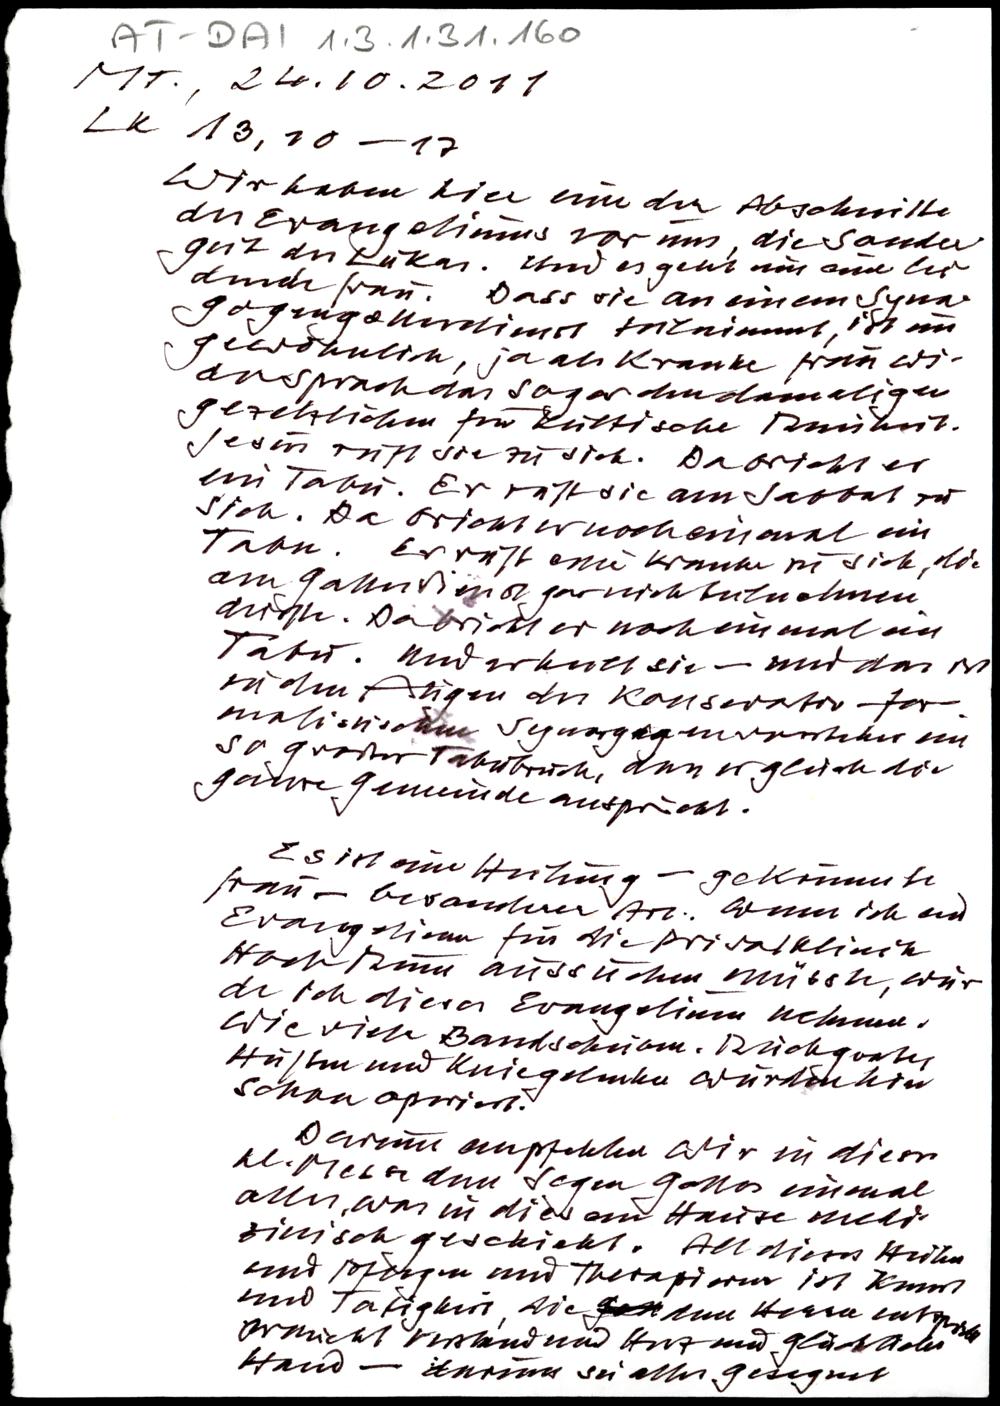 AT-DAI 1.3.1.31.160
Mt., 24.10.2011
Lk 13, 10 – 17
Wir haben hier einen der Abschnitte
des Evangeliums vor uns, die Sonder
gut des Lukas. Und es geht um eine lei
dende Frau. Dass sie an einem Syna-
gogengottesdienst teilnimmt, ist un
gewöhnlich, ja als kranke Frau wi-
dersprach das sogar den damaligen
gesetzlichen für kultische Reinheit.
Jesus ruft sie zu sich. Da bricht er
ein Tabu. Er ruft sie am Sabbat zu
sich. Da bricht er noch einmal ein
Tabu. Er ruft eine Kranke zu sich, die
am Gottesdienst gar nicht teilnehmen
dürfte. Da bricht er noch einmal ein
Tabu. Und er heilt sie – und das ist
in den Augen des konservativ-for-
malistischen Synagogenvorstehers ein
so großer Tabubruch, dass er gleich die
ganze Gemeinde anspricht.
Es ist eine Heilung – gekrümmte
Frau – besonderer Art. Wenn ich ein
Evangelium für die Privatklinik
Hochrum aussuchen müsste, wür
de ich dieses Evangelium nehmen.
Wie viele Bandscheiben, Rückgrate,
Hüften und Kniegelenke wurden hier
schon operiert.
Darum empfehlen wir in dieser
hl. Messe dem Segen Gottes einmal
alles, was in diesem Hause medi
zinisch geschieht. All dieses Heilen
und Pflegen und Therapieren ist Kunst
und Tätigkeit, die dem Herrn entspricht
braucht Verstand und Herz und glückliche
Hand – darum sei alles gesegnet